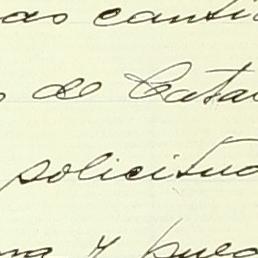 as canti
de Cata
solicitud
y pue